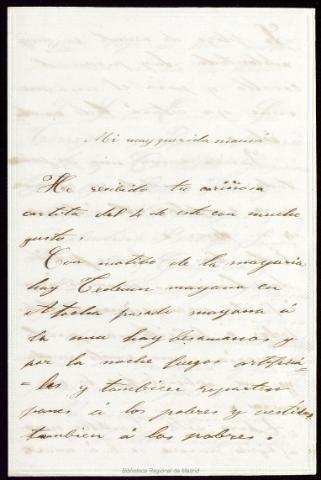 Mi muy querida mamá
He recibido tu cariñosa
cartita del 4 de este con mucho
gusto.
Con motibo de la mayoria
hay Tedeum mayana en
Atocha pasado mayana á
la una hay besamanos y
por la noche fuegos artifisia-
=les y tambien reparten
panes á los pobres y vestidos
tambien á los pobres.
Biblioteca Regional de Madrid